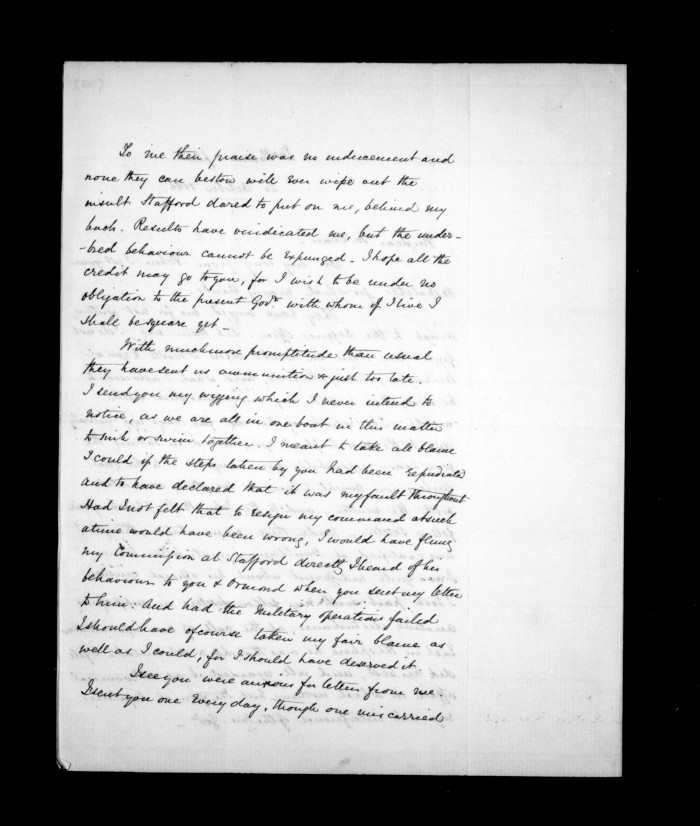 To me their praise was no inducement and
none they can bestow will ever wipe out the
insult Stafford dared to put on me, behind my
back. Results have vindicated me, but the under-
-bred behaviour cannot be expunged. I hope all the
credit may go to you, for I wish to be under no
obligation to the present Govt. with whom if I live I
shall be square yet –
With much more promptitude than usual
they have sent us ammunition & just too late.
I send you my wigging which I never intend to
notice, as we are all in one boat in this matter
to sink or swim together. I meant to take all blame
I could if the steps taken by you had been repudiated
and to have declared that it was my fault throughout
Had I not felt that to resign my command at such
a time would have been wrong, I would have flung
my Commission at Stafford directly I heard of his
behaviour to you & Ormond when you sent my letter
to him. And had the Military operations failed
I should have of course taken my fair blame as
well as I could, for I should have deserved it
I see you were anxious for letters from me.
I sent you one every day, though one miscarried